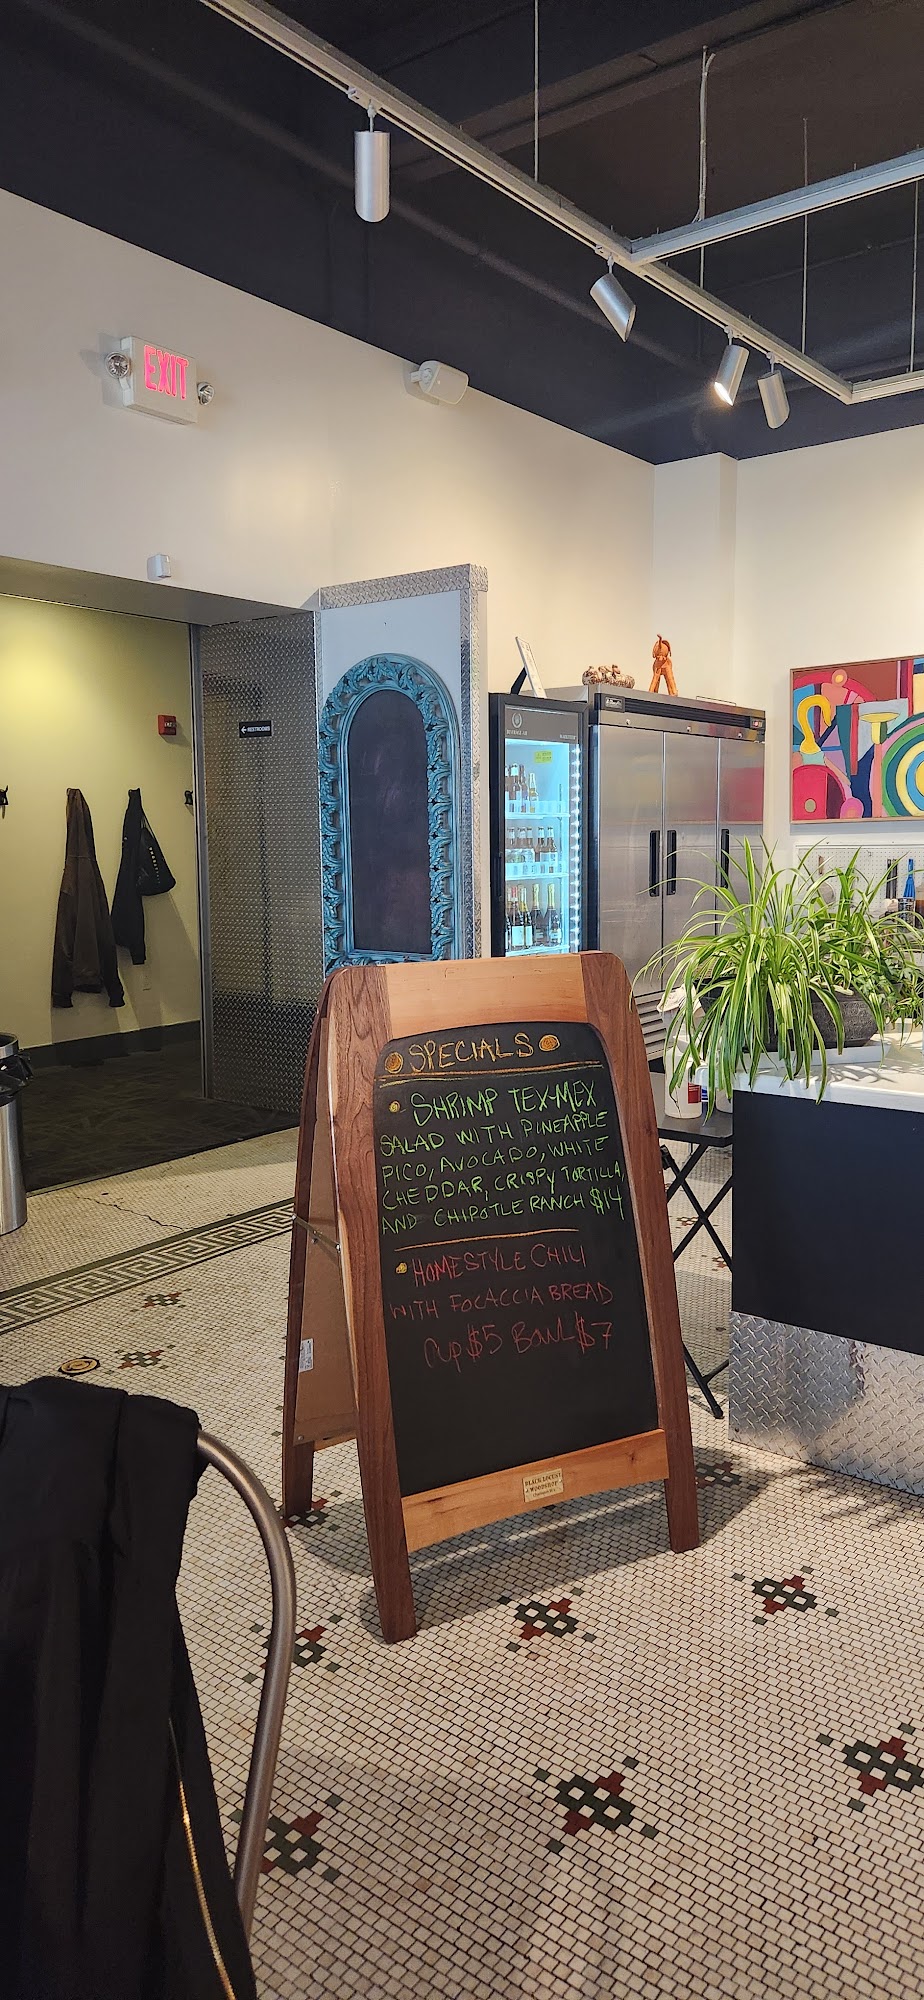 EXIT
RESTROOMS
SPECIALS
SHRIMP TEX-MEX
SALAD WITH PINEAPPLE
PICO, AVOCADO, WHITE
CHEDDAR, CRISPY TORTILLA,
AND CHIPOTLE RANCH $14
HOMESTYLE CHILI
WITH FOCACCIA BREAD
CUP $5 BOWL $7
BLACK LOCUST
WOODSHOP